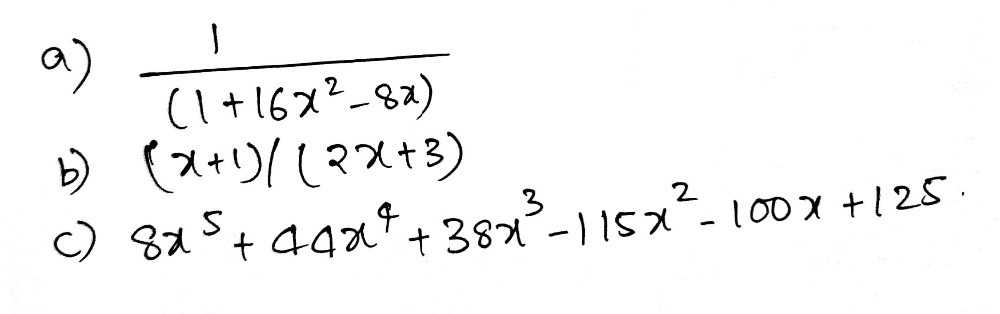 a) 1/(1+16x²-8x)
b) (x+1)/(2x+3)
c) 8x⁵+44x⁴+38x³-115x²-100x+125.